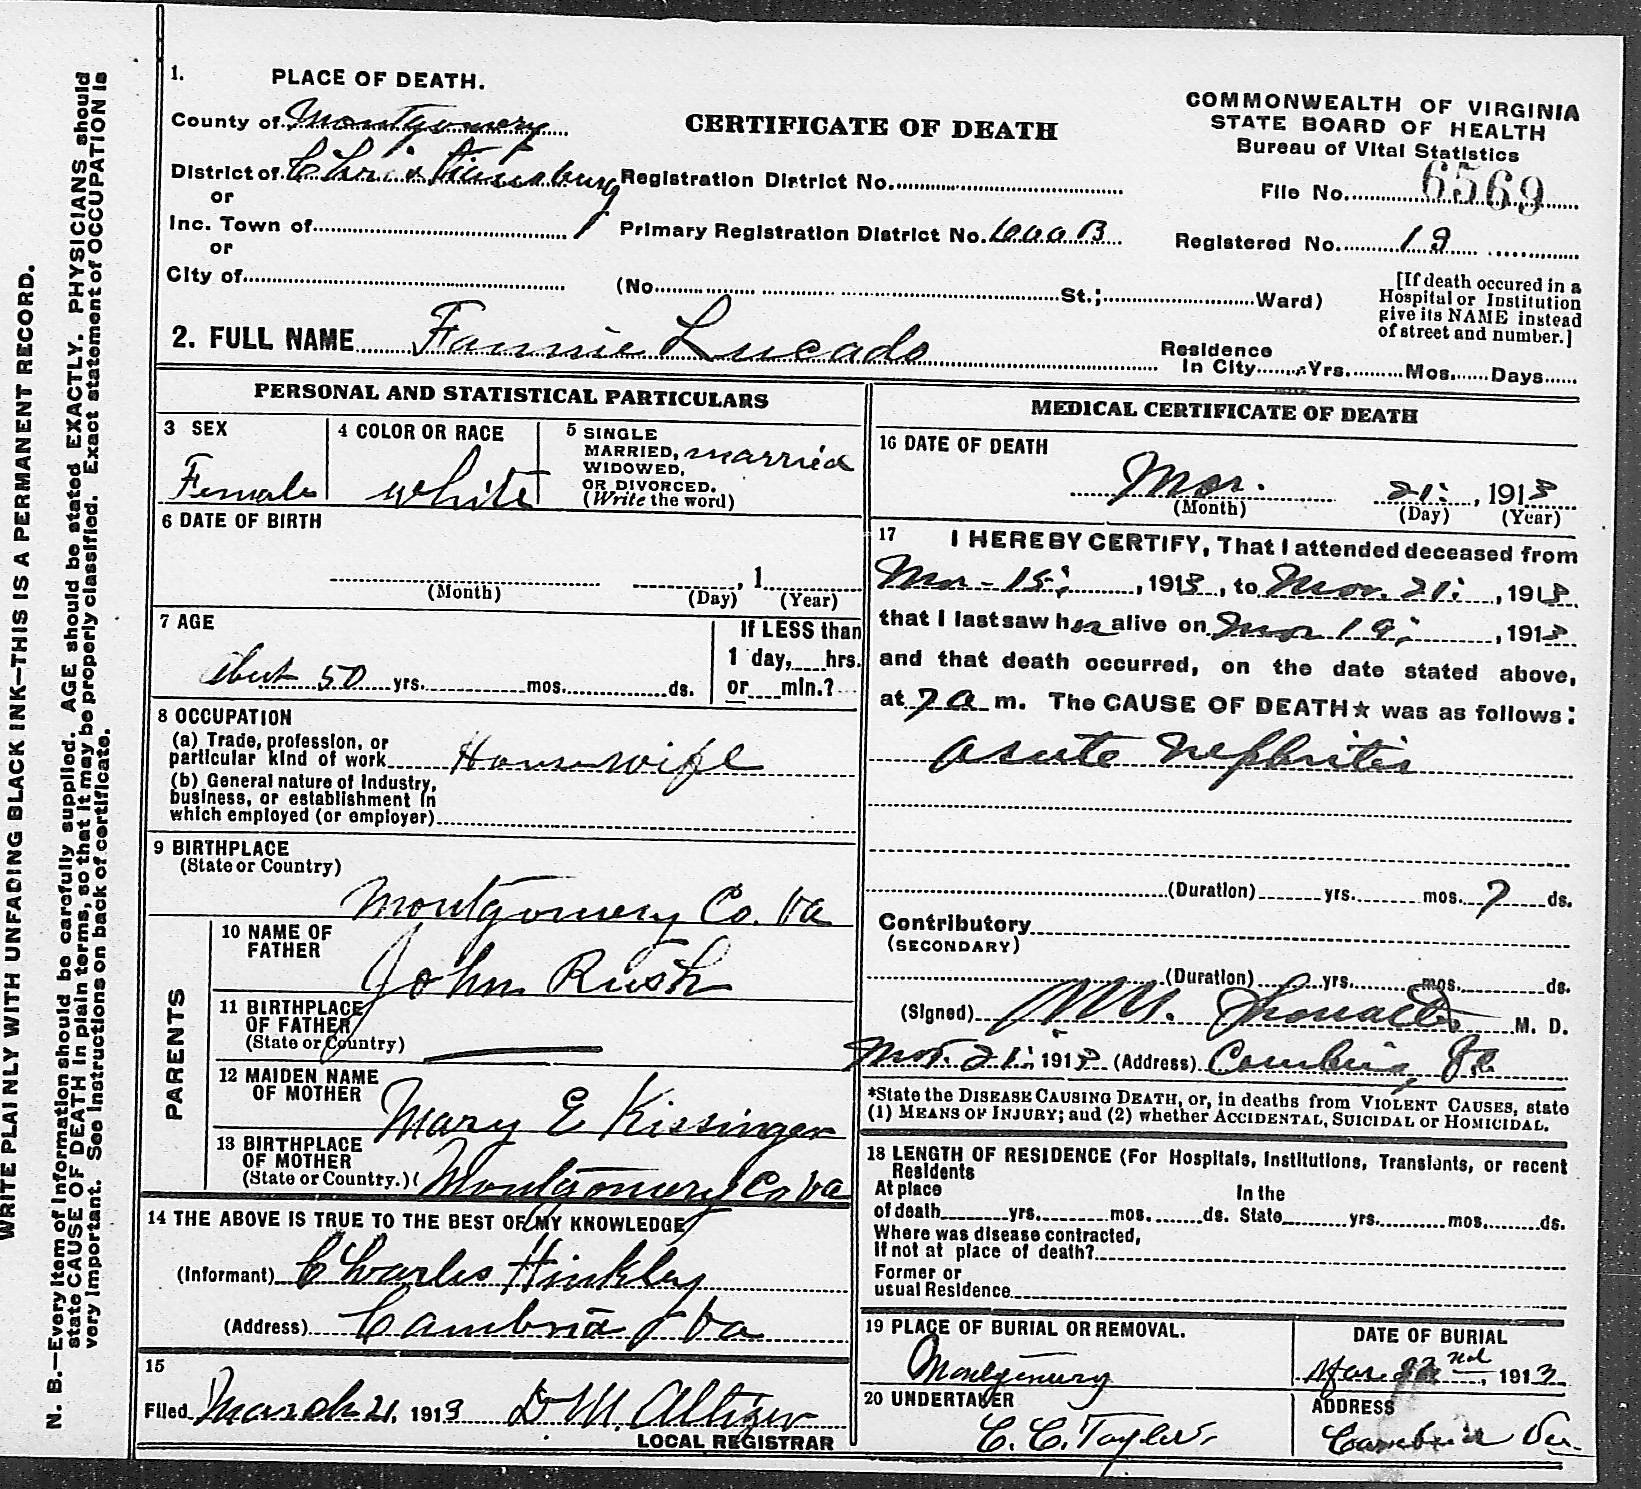 WRITE PLAINLY WITH UNFADING BLACK INK—THIS IS A PERMANENT RECORD.
N. B.—Every item of information should be carefully supplied. AGE should be stated EXACTLY. PHYSICIANS should
state CAUSE OF DEATH in plain terms, so that it may be properly classified. Exact statement of OCCUPATION is
very important. See instructions on back of certificate.
1. PLACE OF DEATH.
County of Montgomery
District of Christiansburg
or
Inc. Town of
or
City of
CERTIFICATE OF DEATH
Registration District No.
Primary Registration District No. 600 B
(No. St.; Ward)
COMMONWEALTH OF VIRGINIA
STATE BOARD OF HEALTH
Bureau of Vital Statistics
File No. 6569
Registered No. 19
[If death occured in a
Hospital or Institution
give its NAME instead
of street and number.]
2. FULL NAME Fannie Lucado
Residence
In City Yrs. Mos. Days
PERSONAL AND STATISTICAL PARTICULARS
3 SEX
Female
4 COLOR OR RACE
white
5 SINGLE
MARRIED, married
WIDOWED,
OR DIVORCED.
(Write the word)
6 DATE OF BIRTH
, 1
(Month) (Day) (Year)
7 AGE
About 50 yrs. mos. ds.
If LESS than
1 day, hrs.
or min.?
8 OCCUPATION
(a) Trade, profession, or
particular kind of work Housewife
(b) General nature of Industry,
business, or establishment in
which employed (or employer)
9 BIRTHPLACE
(State or Country)
Montgomery Co. Va
PARENTS
10 NAME OF
FATHER
John Rush
11 BIRTHPLACE
OF FATHER
(State or Country)
12 MAIDEN NAME
OF MOTHER
Mary E Kissinger
13 BIRTHPLACE
OF MOTHER
(State or Country.) Montgomery Co Va
14 THE ABOVE IS TRUE TO THE BEST OF MY KNOWLEDGE
(Informant) Charles Hinkley
(Address) Cambria Va
15
Filed March 21, 1913 D. M. Altizer
LOCAL REGISTRAR
MEDICAL CERTIFICATE OF DEATH
16 DATE OF DEATH
Mar. 21, 1913
(Month) (Day) (Year)
17 I HEREBY CERTIFY, That I attended deceased from
Mar - 15, 1913, to Mar. 21, 1913
that I last saw her alive on Mar 19, 1913
and that death occurred, on the date stated above,
at 7 a m. The CAUSE OF DEATH★ was as follows:
asute Nephritis
(Duration) yrs. mos. 7 ds.
Contributory
(SECONDARY)
(Duration) yrs. mos. ds.
(Signed) M. D.
Mar. 21, 1913 (Address) Cambria, Va
*State the DISEASE CAUSING DEATH, or, in deaths from VIOLENT CAUSES, state
(1) MEANS OF INJURY; and (2) whether ACCIDENTAL, SUICIDAL or HOMICIDAL.
18 LENGTH OF RESIDENCE (For Hospitals, Institutions, Transients, or recent
Residents
At place In the
of death yrs. mos. ds. State yrs. mos. ds.
Where was disease contracted,
If not at place of death?
Former or
usual Residence
19 PLACE OF BURIAL OR REMOVAL.
Montgomery
DATE OF BURIAL
Mar. 22nd, 1913
20 UNDERTAKER
C. C. Taylor
ADDRESS
Cambria Va.